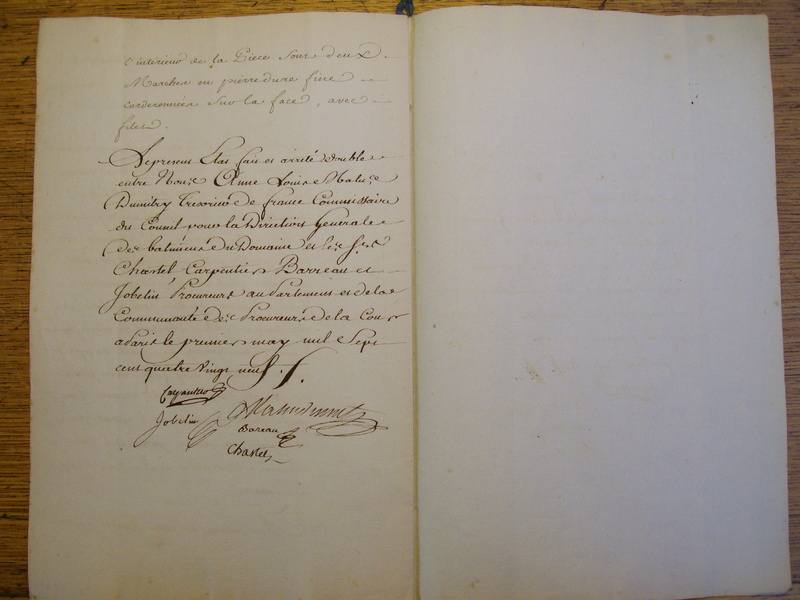 l'interieur de la Piece Sous deux
Marches en pierre dure
sur la face, avec
filets.
Le present Etat fait et arrêté double
entre Nous Anne Louise
Dumitry Tresorier de france Commissaire
du Conseil pour la Direction Generale
des batimens du Domaine et les Srs
Chastel, Carpentier Barreau et
Jobelin Procureurs au Parlement et de la
Communauté des Procureurs de la Cour
a Paris le premier may mil Sept
cent quatre Vingt neuf ./.
Carpentier
Jobelin
Bareau
Chastel